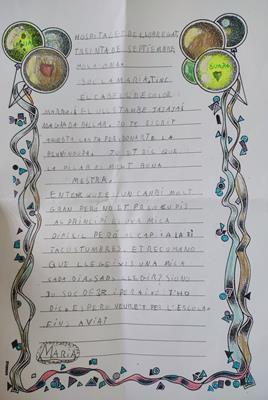 HOSPITALET DE LLOBREGAT
TREINTA DE SEPTIEMBRE
HOLA
SOC LA MARIA, TINC
EL CABELL DE COLOR
MARRÓ I ELS ULLS TAMBÉ JAJAJAJ
M'AGRADA BALLAR. JO TE ESCRIT
AQUESTA CARTA PER DONARTE LA
BENVINGUDA. JO ET DIC QUE
LA PILAR ES MOLT BONA
MESTRA.
ENTENC QUE ES UN CANBI MOLT
GRAN PERÒ NO ET PREOCUPIS
AL PRINCIPI ES UNA MICA
DIFICIL PERÒ AL CAP I A LA FI
TACOSTUMBRES. ET RECOMANO
QUE LLEGEIXIS UNA MICA
CADA DIA. SAPS LLEGIR? SI NO
JO SOC
DIC. ESPERO VEURE'T PER L'ESCOLA
FINS AVIAT
MARIA